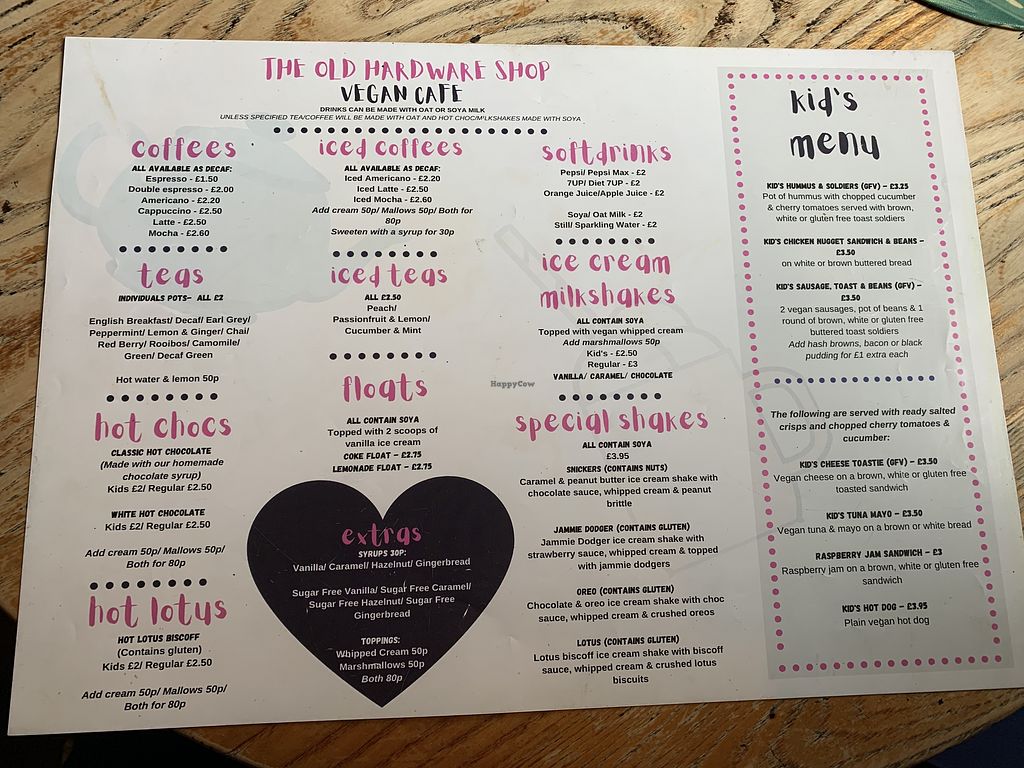 THE OLD HARDWARE SHOP
VEGAN CAFE
DRINKS CAN BE MADE WITH OAT OR SOYA MILK
UNLESS SPECIFIED TEA/COFFEE WILL BE MADE WITH OAT AND HOT CHOC/MILKSHAKES MADE WITH SOYA
coffees
ALL AVAILABLE AS DECAF:
Espresso - £1.50
Double espresso - £2.00
Americano - £2.20
Cappuccino - £2.50
Latte - £2.50
Mocha - £2.60
teas
INDIVIDUALS POTS- ALL £2
English Breakfast/ Decaf/ Earl Grey/
Peppermint/ Lemon & Ginger/ Chai/
Red Berry/ Rooibos/ Camomile/
Green/ Decaf Green
Hot water & lemon 50p
hot chocs
CLASSIC HOT CHOCOLATE
(Made with our homemade
chocolate syrup)
Kids £2/ Regular £2.50
WHITE HOT CHOCOLATE
Kids £2/ Regular £2.50
Add cream 50p/ Mallows 50p/
Both for 80p
hot lotus
HOT LOTUS BISCOFF
(Contains gluten)
Kids £2/ Regular £2.50
Add cream 50p/ Mallows 50p/
Both for 80p
iced coffees
ALL AVAILABLE AS DECAF:
Iced Americano - £2.20
Iced Latte - £2.50
Iced Mocha - £2.60
Add cream 50p/ Mallows 50p/ Both for
80p
Sweeten with a syrup for 30p
iced teas
ALL £2.50
Peach/
Passionfruit & Lemon/
Cucumber & Mint
floats
ALL CONTAIN SOYA
Topped with 2 scoops of
vanilla ice cream
COKE FLOAT - £2.75
LEMONADE FLOAT - £2.75
extras
SYRUPS 30P:
Vanilla/ Caramel/ Hazelnut/ Gingerbread
Sugar Free Vanilla/ Sugar Free Caramel/
Sugar Free Hazelnut/ Sugar Free
Gingerbread
TOPPINGS:
Whipped Cream 50p
Marshmallows 50p
Both 80p
softdrinks
Pepsi/ Pepsi Max - £2
7UP/ Diet 7UP - £2
Orange Juice/Apple Juice - £2
Soya/ Oat Milk - £2
Still/ Sparkling Water - £2
ice cream
milkshakes
ALL CONTAIN SOYA
Topped with vegan whipped cream
Add marshmallows 50p
Kid's - £2.50
Regular - £3
VANILLA/ CARAMEL/ CHOCOLATE
HappyCow
special shakes
ALL CONTAIN SOYA
£3.95
SNICKERS (CONTAINS NUTS)
Caramel & peanut butter ice cream shake with
chocolate sauce, whipped cream & peanut
brittle
JAMMIE DODGER (CONTAINS GLUTEN)
Jammie Dodger ice cream shake with
strawberry sauce, whipped cream & topped
with jammie dodgers
OREO (CONTAINS GLUTEN)
Chocolate & oreo ice cream shake with choc
sauce, whipped cream & crushed oreos
LOTUS (CONTAINS GLUTEN)
Lotus biscoff ice cream shake with biscoff
sauce, whipped cream & crushed lotus
biscuits
kid's
menu
KID'S HUMMUS & SOLDIERS (GFV) - £3.25
Pot of hummus with chopped cucumber
& cherry tomatoes served with brown,
white or gluten free toast soldiers
KID'S CHICKEN NUGGET SANDWICH & BEANS -
£3.50
on white or brown buttered bread
KID'S SAUSAGE, TOAST & BEANS (GFV) -
£3.50
2 vegan sausages, pot of beans & 1
round of brown, white or gluten free
buttered toast soldiers
Add hash browns, bacon or black
pudding for £1 extra each
The following are served with ready salted
crisps and chopped cherry tomatoes &
cucumber:
KID'S CHEESE TOASTIE (GFV) - £3.50
Vegan cheese on a brown, white or gluten free
toasted sandwich
KID'S TUNA MAYO - £3.50
Vegan tuna & mayo on a brown or white bread
RASPBERRY JAM SANDWICH - £3
Raspberry jam on a brown, white or gluten free
sandwich
KID'S HOT DOG - £3.95
Plain vegan hot dog